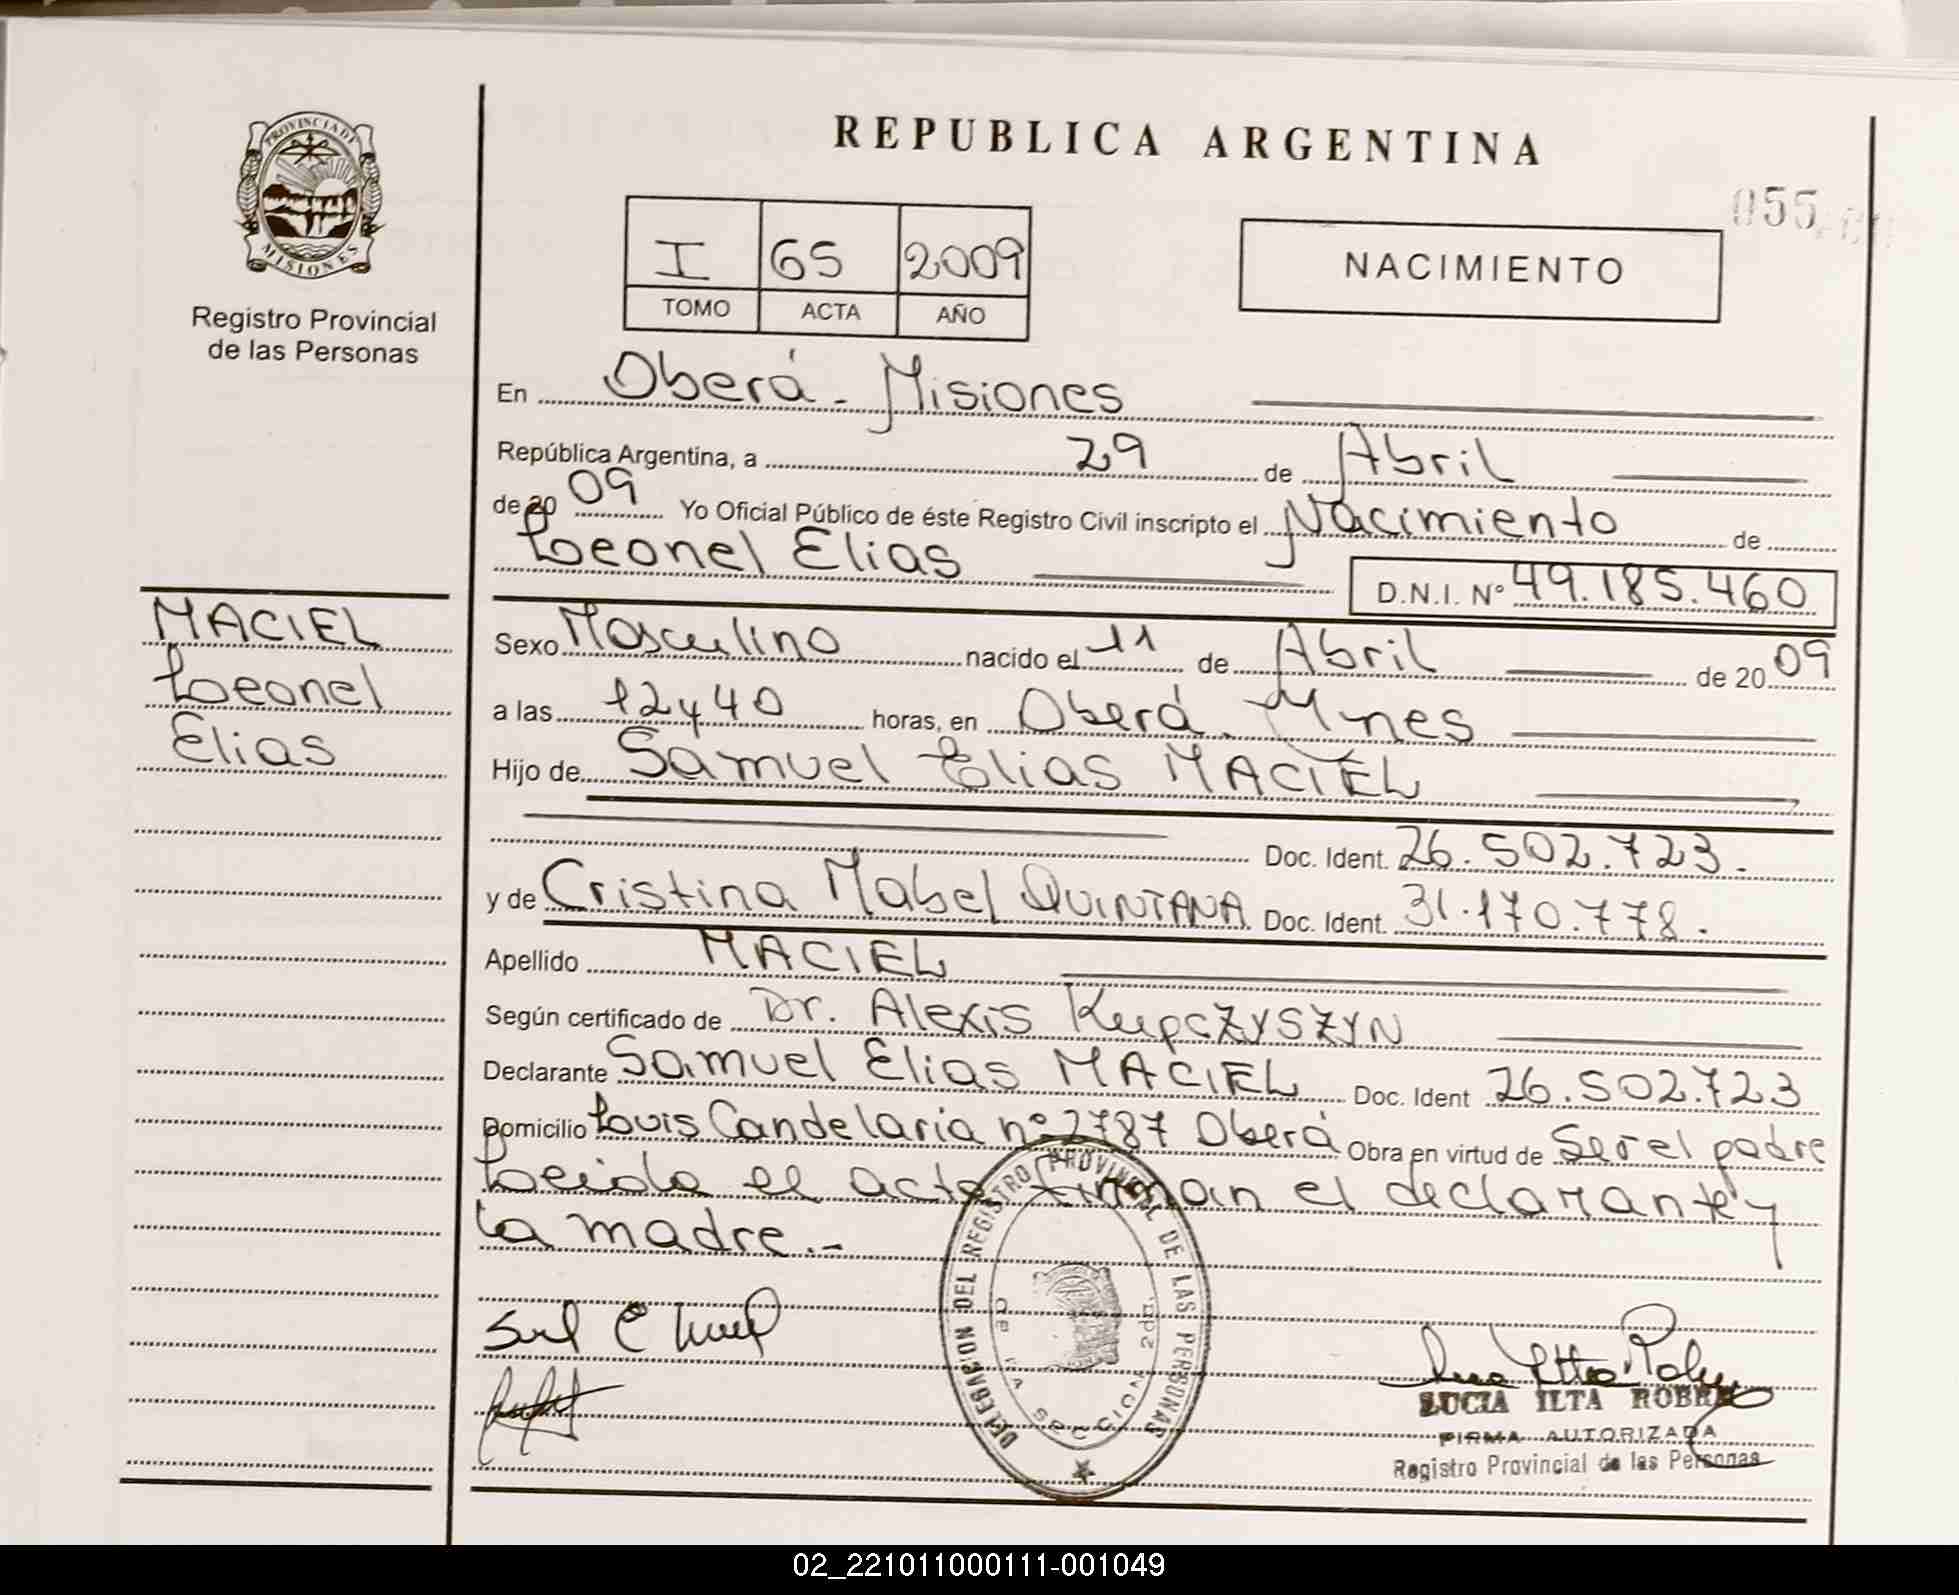 PROVINCIA DE
MISIONES
Registro Provincial
de las Personas
MACIEL
Leonel
Elias
REPUBLICA ARGENTINA
055
I 65 2009
TOMO ACTA AÑO
NACIMIENTO
En Oberá - Misiones
República Argentina, a 29 de Abril
de 20 09 Yo Oficial Público de éste Registro Civil inscripto el Nacimiento de
Leonel Elias
D.N.I. Nº 49.185.460
Sexo Masculino nacido el 11 de Abril de 20 09
a las 12 y 40 horas, en Oberá - Mnes
Hijo de Samuel Elias MACIEL
Doc. Ident. 26.502.723.
y de Cristina Mabel QUINTANA Doc. Ident. 31.170.778.
Apellido MACIEL
Según certificado de Dr. Alexis KupcZYSZYN
Declarante Samuel Elias MACIEL Doc. Ident 26.502.723
Domicilio Louis Candelaria nº 2787 Oberá Obra en virtud de Ser el padre
Leida el acta firman el declarante y
la madre.-
DELEGACION DEL REGISTRO PROVINCIAL DE LAS PERSONAS
DE LA SECCION 2da.
LUCIA ILTA
FIRMA AUTORIZADA
Registro Provincial de las Personas
02_221011000111-001049